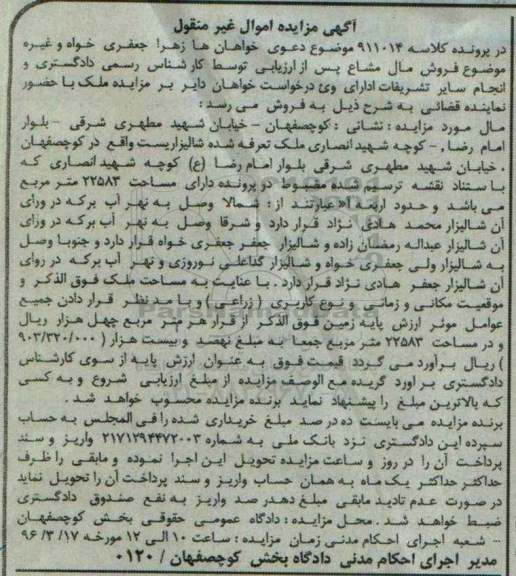 آگهی مزایده اموال غیر منقول
در پرونده کلاسه ۹۱۱۰۱۴ موضوع دعوی خواهان ها زهرا جعفری خواه و غیره
موضوع فروش مال مشاع پس از ارزیابی توسط کارشناس رسمی دادگستری و
انجام سایر تشریفات ادارای وی درخواست خواهان دایر بر مزایده ملک با حضور
نماینده قضائی به شرح ذیل به فروش می رسد :
مال مورد مزایده : نشانی : کوچصفهان – خیابان شهید مطهری شرقی – بلوار
امام رضا , – کوچه شهید انصاری ملک تعرفه شده شالیزاریست واقع در کوچصفهان
. خیابان شهید مطهری شرقی بلوار امام رضا (ع) کوچه شهید انصاری که
با ستناد نقشه ترسیم شده مضبوط در پرونده دارای مساحت ۲۲۵۸۳ متر مربع
می باشد و حدود اربعه آ« عبارتند از : شمالا وصل به نهر آب برکه در ورای
آن شالیزار محمد هادی نژاد قرار دارد و شرقا وصل به نهر آب برکه در ورای
آن شالیزار عبداله رمضان زاده و شالیزار جعفر جعفری خواه قرار دارد و جنوبا وصل
به شالیزار ولی جعفری خواه و شالیزار گداعلی نوروزی و نهر آب برکه در روای
آن شالیزار جعفر هادی نژاد قرار دارد . با عنایت به مساحت ملک فوق الذکر و
موقعیت مکانی و زمانی و نوع کاربری ( زراعی ) و با مد نظر قرار دادن جمیع
عوامل موثر ارزش پایه زمین فوق الذکر از قرار هر متر مربع چهل هزار ریال
و در مساحت ۲۲۵۸۳ متر مربع جمعا به مبلغ نهصد و بیست هزار ( ۹۰۳/۳۲۰/۰۰۰
) ریال برآورد می گردد قیمت فوق به عنوان ارزش پایه از سوی کارشناس
دادگستری برآورد گریده مع الوصف مزایده از مبلغ ارزیابی شروع و به کسی
که بالاترین مبلغ را پیشنهاد نماید برنده مزایده محسوب خواهد شد .
برنده مزایده می بایست ده در صد مبلغ خریداری شده را فی المجلس به حساب
سپرده این دادگستری نزد بانک ملی به شماره ۲۱۷۱۲۹۴۴۷۲۰۰۳ واریز و سند
پرداخت آن را در روز و ساعت مزایده تحویل این اجرا نموده و مابقی را ظرف
حداکثر حداکثر یک ماه به همان حساب واریز و سند پرداخت آن را تحویل نماید
در صورت عدم تادید مابقی مبلغ دهدر صد واریز به نفع صندوق دادگستری
ضبط خواهد شد . محل مزایده : دادگاه عمومی حقوقی بخش کوچصفهان
... شعبه اجرای احکام مدنی زمان مزایده : ساعت ۱۰ الی ۱۲ مورخه ۱۷/ ۳/ ۹۶
مدیر اجرای احکام مدنی دادگاه بخش کوچصفهان / ۰۱۲۰
ParsNamadData